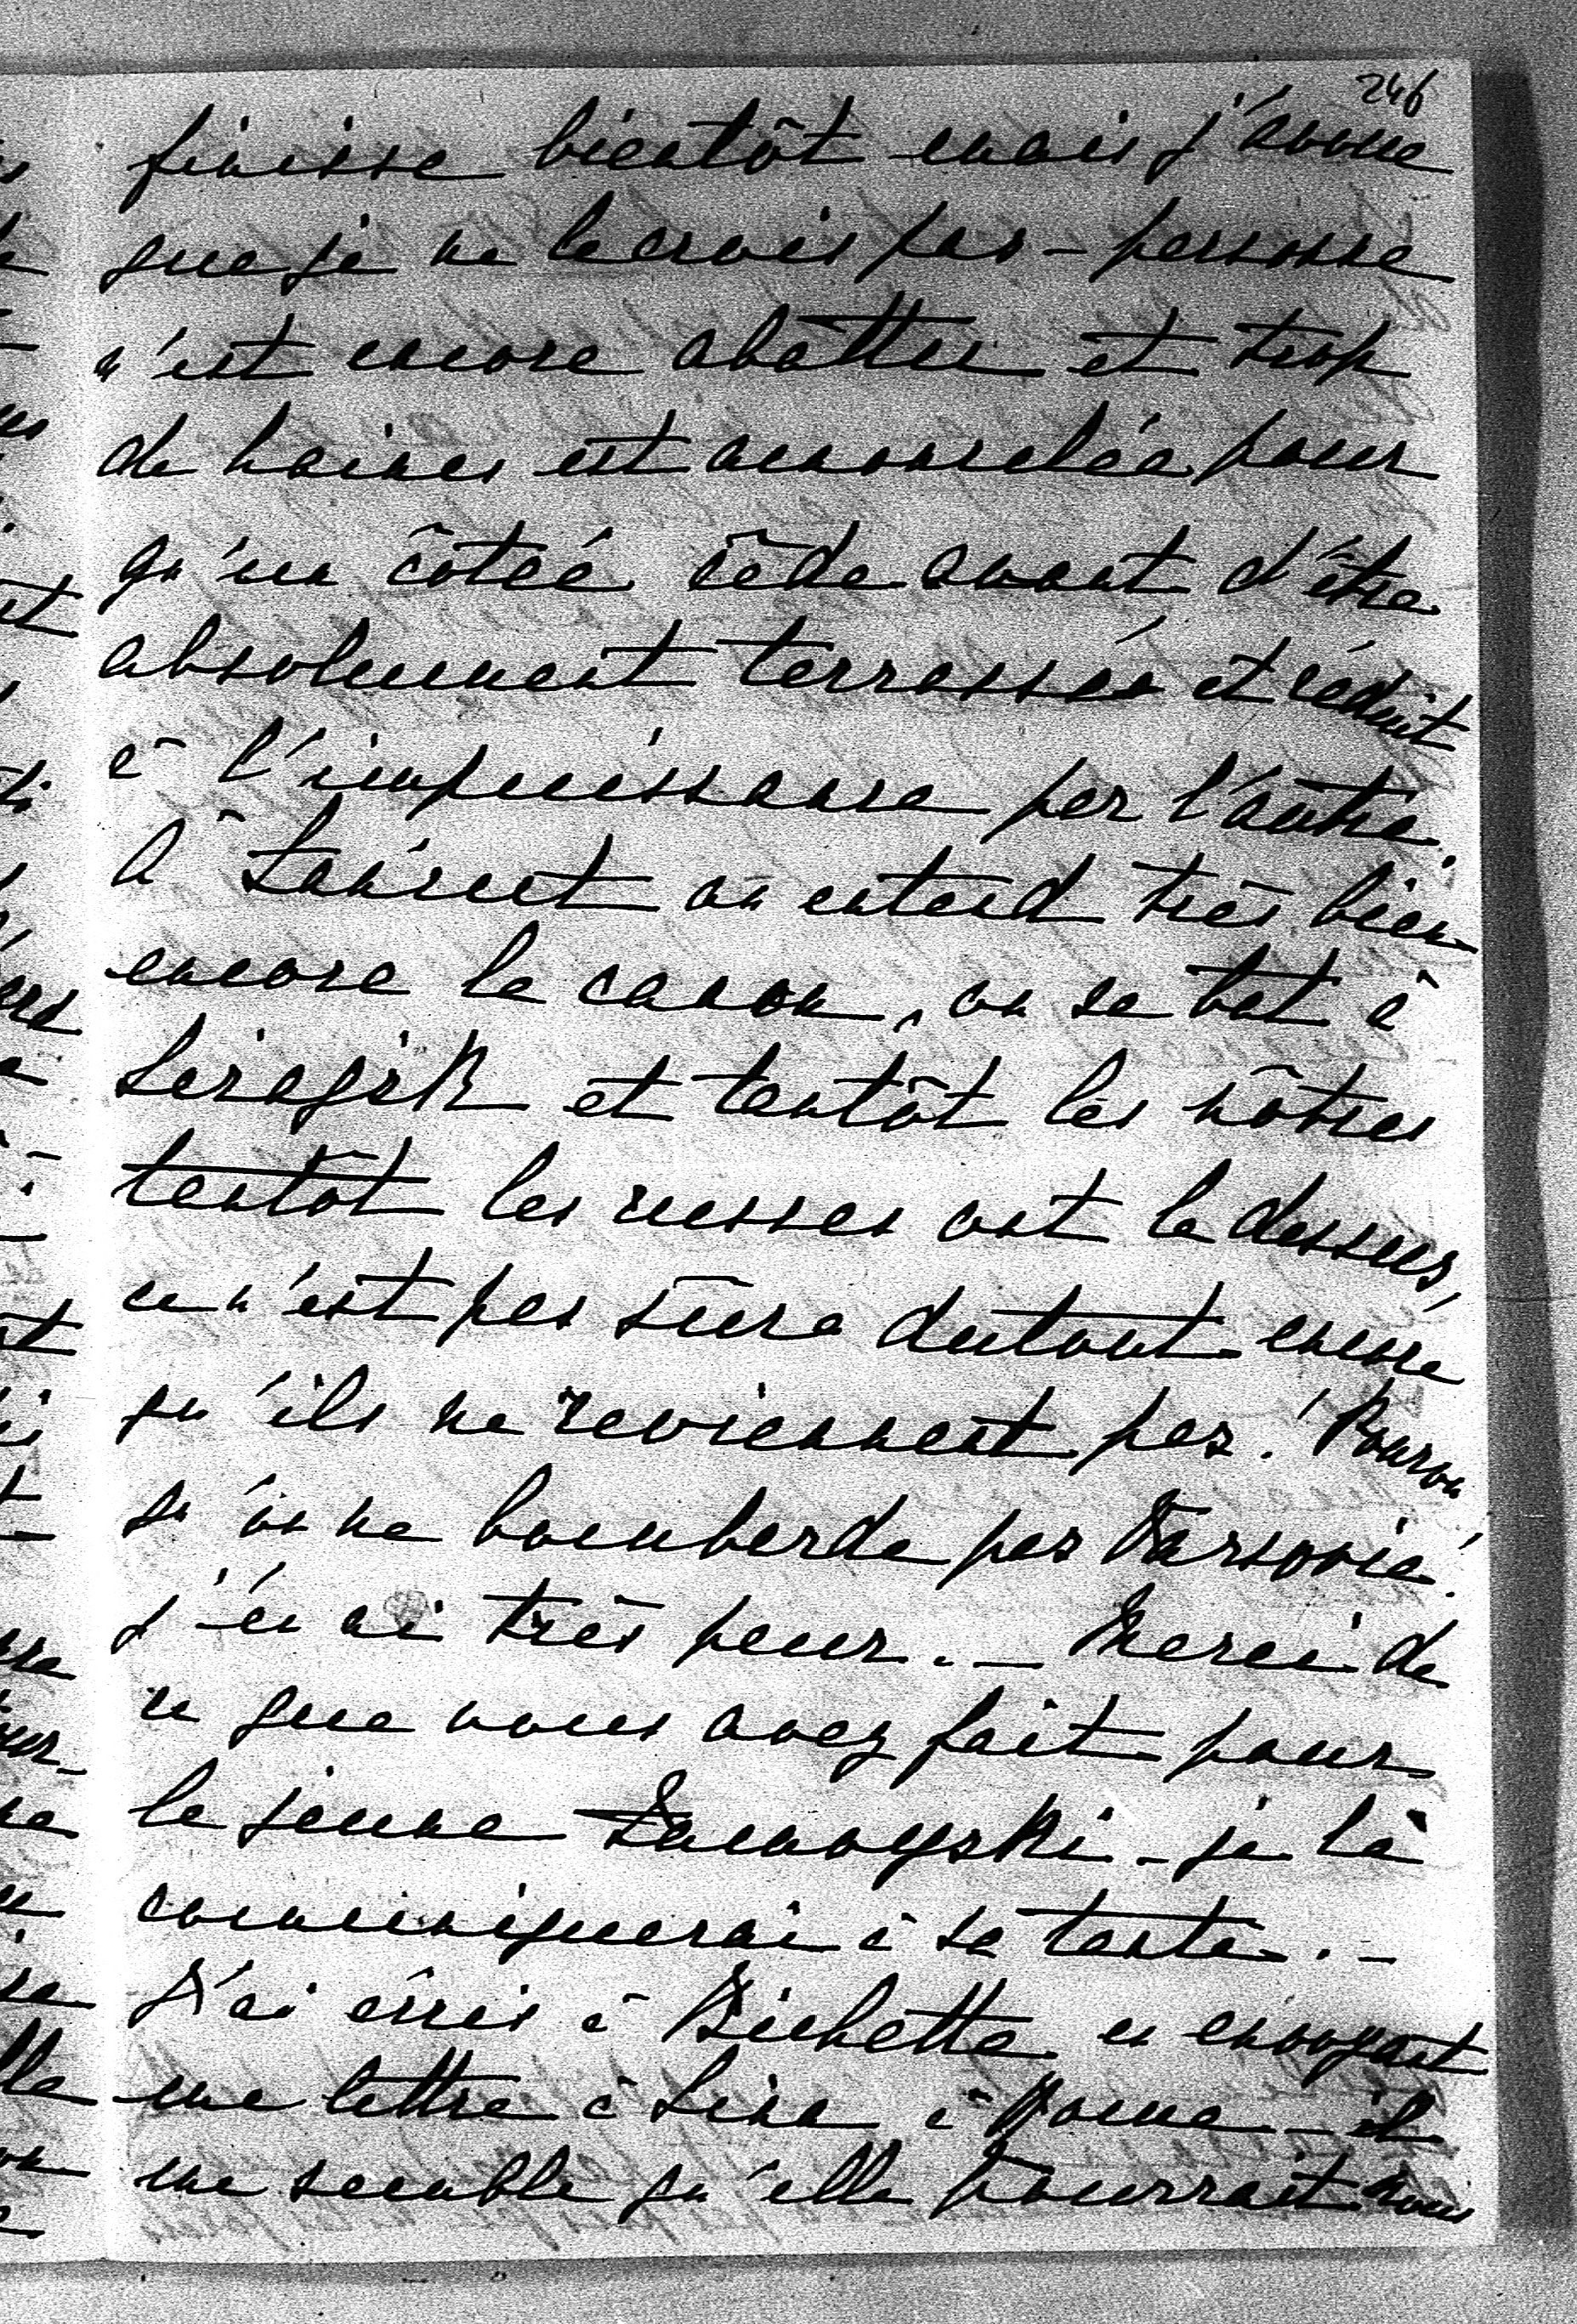 246
finisse bientôt mais j'avoue
que je ne le crois pas – personne
n'est encore abattu et trop
de haines est amoncelée pour
qu'un côtéé cède avant d'être
absolument terrassé et réduit
à l'impuissance par l'autre.
A Łańcut on entend très bien
encore le canon, on se bat à
et tantôt les nôtres
tantôt les russes ont le dessus,
ce n'est pas sûre dutout encore
qu'ils ne reviennent pas! Pourvu
qu'on ne bombarde pas Varsovie!
j'en ai très peur. – Merci de
ce que vous avez fait pour
le jeune Zamoyski – je le
communiquerai à sa tante. –
J'ai écris à Bichette en envoyant
une lettre à Lina à Rome – il
me semble qu'elle pourrait nous